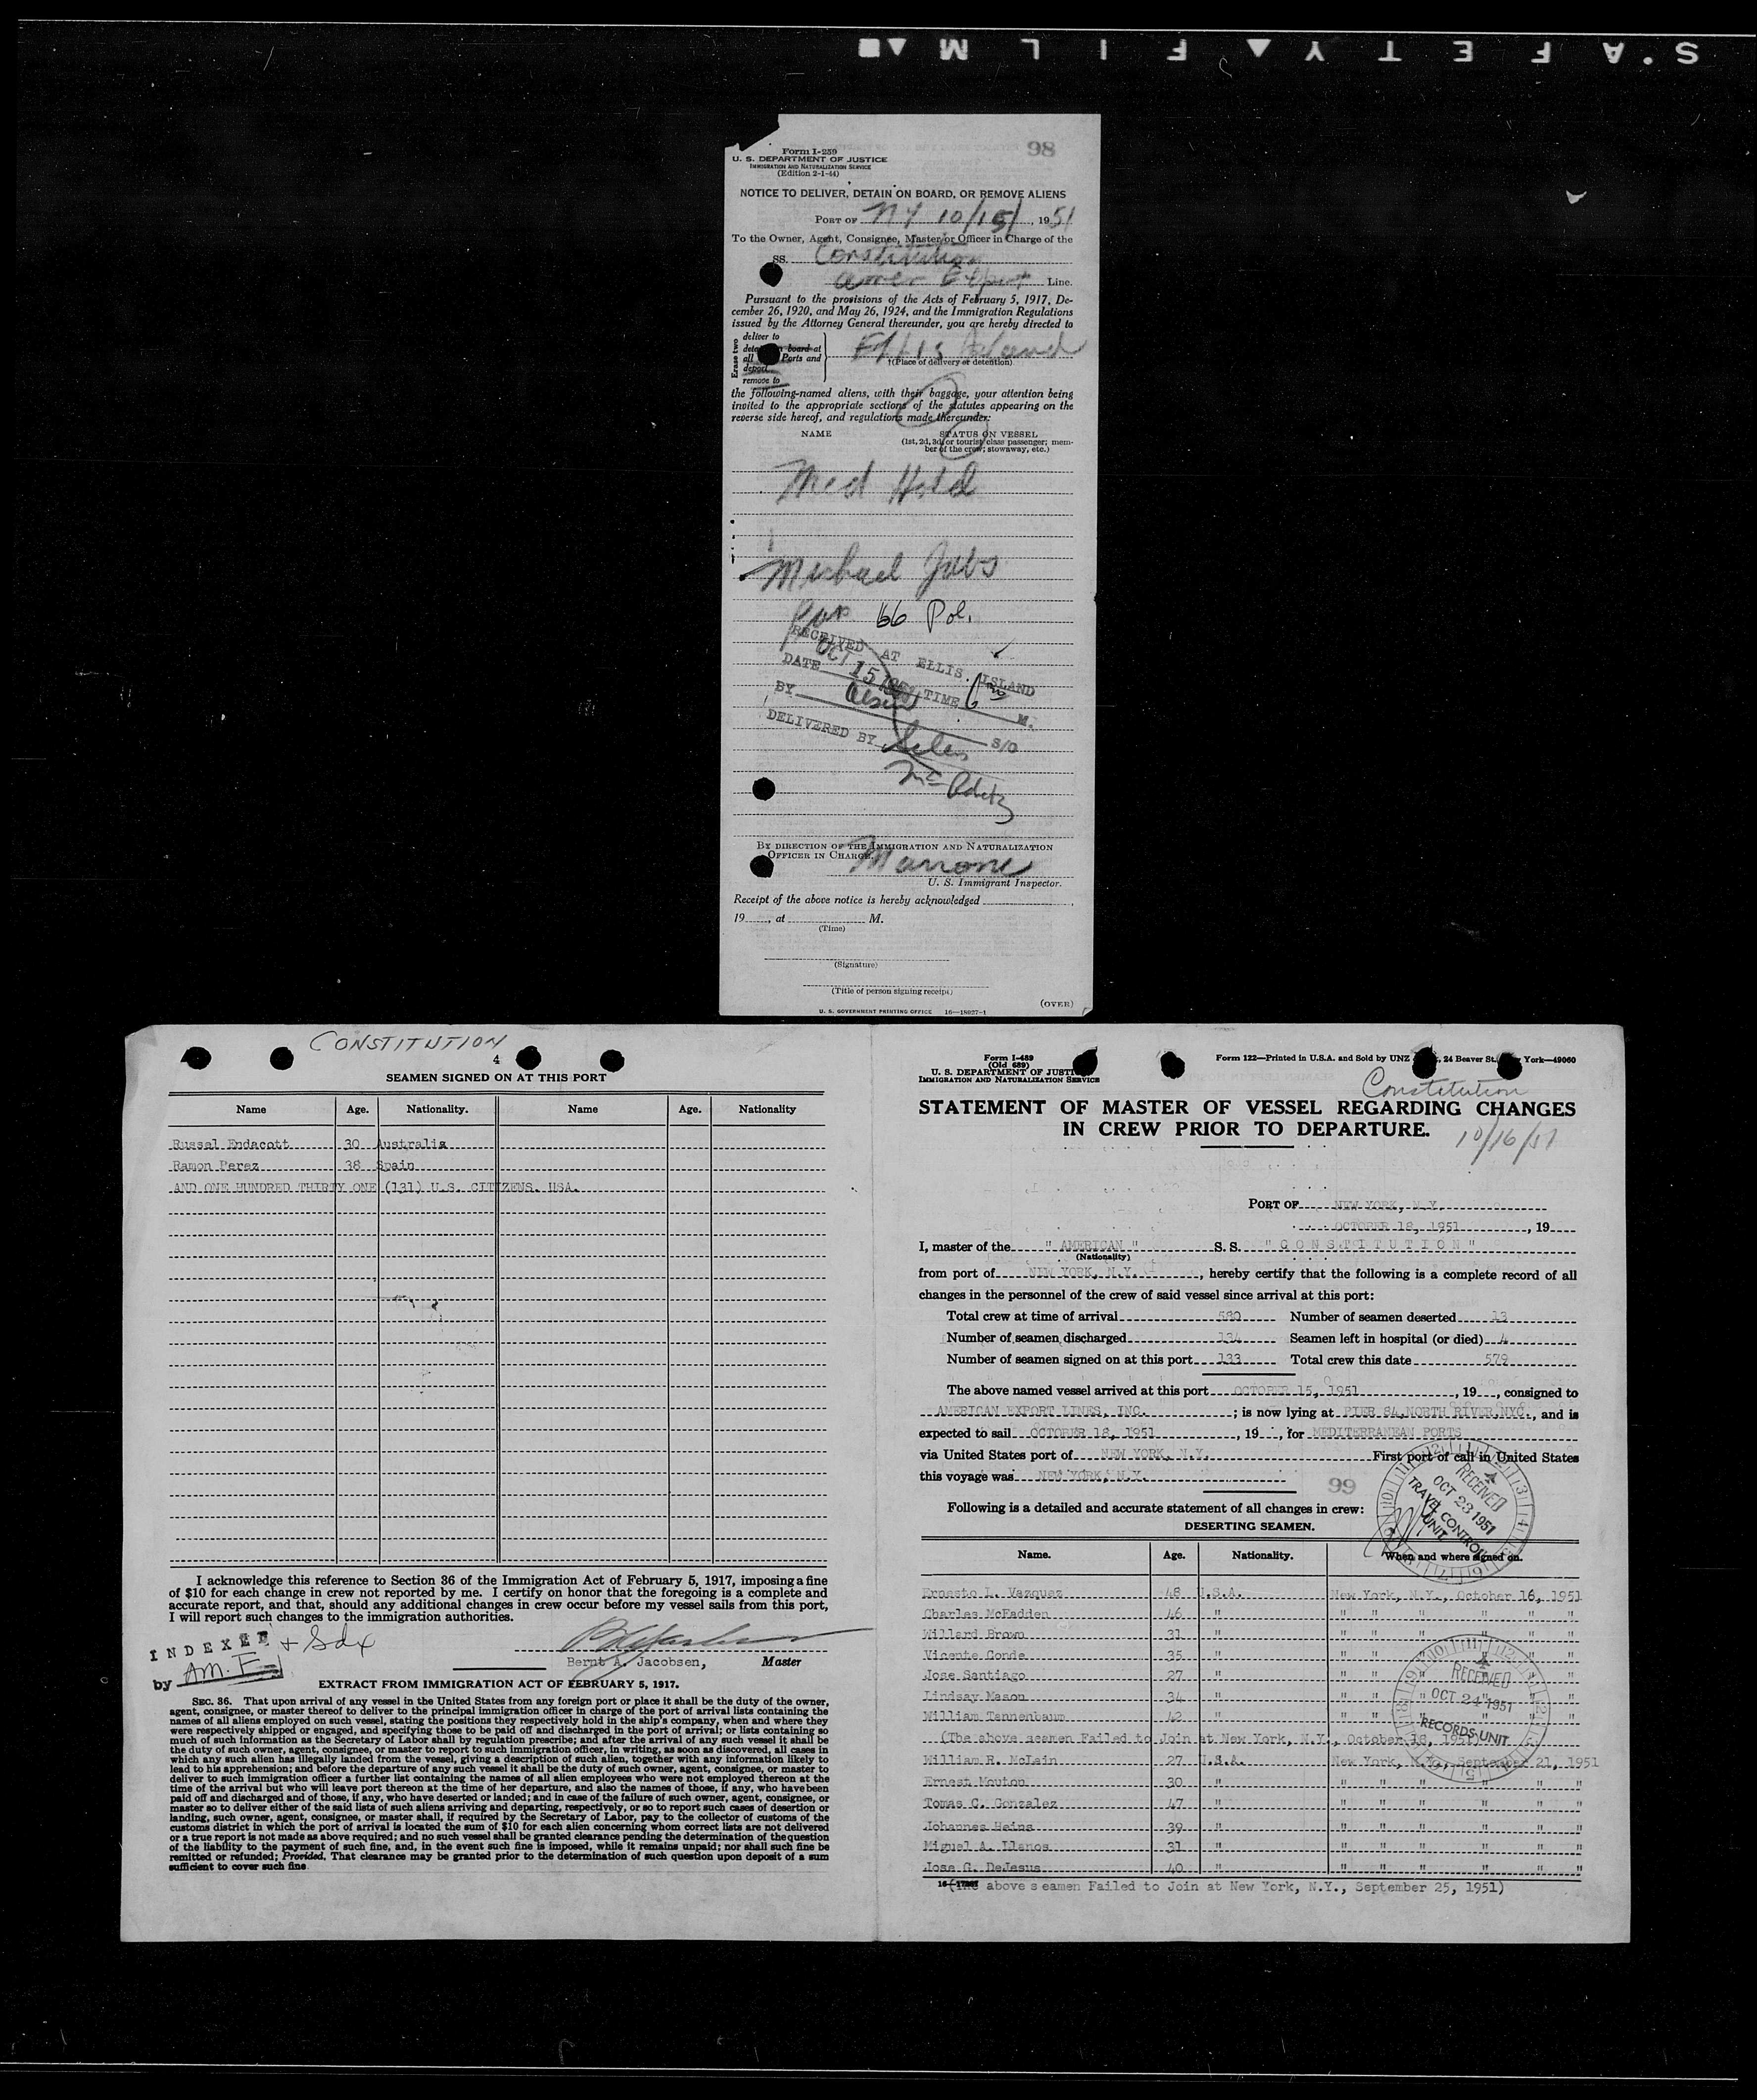 SAFETY FILM
98
Form I-259
U. S. DEPARTMENT OF JUSTICE
IMMIGRATION AND NATURALIZATION SERVICE
(Edition 2-1-44)
NOTICE TO DELIVER, DETAIN ON BOARD, OR REMOVE ALIENS
PORT OF NY 10/15/, 1951
To the Owner, Agent, Consignee, Master or Officer in Charge of the
SS. Constitution
Amer Export Line.
Pursuant to the provisions of the Acts of February 5, 1917, De-
cember 26, 1920, and May 26, 1924, and the Immigration Regulations
issued by the Attorney General thereunder, you are hereby directed to
Erase two
deliver to
board at
all Ports and
deport
remove to
Ellis Island
†(Place of delivery or detention)
the following-named aliens, with their baggage, your attention being
invited to the appropriate sections of the statutes appearing on the
reverse side hereof, and regulations made thereunder:
NAME STATUS ON VESSEL
(1st, 2d, 3d, or tourist class passenger; mem-
ber of the crew; stowaway, etc.)
Med Hold
Michael
66 Pol.
RECEIVED AT ELLIS ISLAND
DATE OCT 15 TIME M.
BY S/O
DELIVERED BY
BY DIRECTION OF THE IMMIGRATION AND NATURALIZATION
OFFICER IN CHARGE.
Marrone
U. S. Immigrant Inspector.
Receipt of the above notice is hereby acknowledged
19 , at M.
(Time)
(Signature)
(Title of person signing receipt)
(OVER)
U. S. GOVERNMENT PRINTING OFFICE 16—18027-1
CONSTITUTION
4
SEAMEN SIGNED ON AT THIS PORT
Name Age. Nationality. Name Age. Nationality
Russel Endacott 30 Australia
Ramon Perez 38 Spain
AND ONE HUNDRED THIRTY ONE (131) U.S. CITIZENS. USA.
I acknowledge this reference to Section 36 of the Immigration Act of February 5, 1917, imposing a fine
of $10 for each change in crew not reported by me. I certify on honor that the foregoing is a complete and
accurate report, and that, should any additional changes in crew occur before my vessel sails from this port,
I will report such changes to the immigration authorities.
INDEXED
by AM. F
Bernt A. Jacobsen, Master
EXTRACT FROM IMMIGRATION ACT OF FEBRUARY 5, 1917.
SEC. 36. That upon arrival of any vessel in the United States from any foreign port or place it shall be the duty of the owner,
agent, consignee, or master thereof to deliver to the principal immigration officer in charge of the port of arrival lists containing the
names of all aliens employed on such vessel, stating the positions they respectively hold in the ship's company, when and where they
were respectively shipped or engaged, and specifying those to be paid off and discharged in the port of arrival; or lists containing so
much of such information as the Secretary of Labor shall by regulation prescribe; and after the arrival of any such vessel it shall be
the duty of such owner, agent, consignee, or master to report to such immigration officer, in writing, as soon as discovered, all cases in
which any such alien has illegally landed from the vessel, giving a description of such alien, together with any information likely to
lead to his apprehension; and before the departure of any such vessel it shall be the duty of such owner, agent, consignee, or master to
deliver to such immigration officer a further list containing the names of all alien employees who were not employed thereon at the
time of the arrival but who will leave port thereon at the time of her departure, and also the names of those, if any, who have been
paid off and discharged and of those, if any, who have deserted or landed; and in case of the failure of such owner, agent, consignee, or
master so to deliver either of the said lists of such aliens arriving and departing, respectively, or so to report such cases of desertion or
landing, such owner, agent, consignee, or master shall, if required by the Secretary of Labor, pay to the collector of customs of the
customs district in which the port of arrival is located the sum of $10 for each alien concerning whom correct lists are not delivered
or a true report is not made as above required; and no such vessel shall be granted clearance pending the determination of the question
of the liability to the payment of such fine, and, in the event such fine is imposed, while it remains unpaid; nor shall such fine be
remitted or refunded; Provided, That clearance may be granted prior to the determination of such question upon deposit of a sum
sufficient to cover such fine
Form I-489
(Old 689)
U. S. DEPARTMENT OF JUSTICE
IMMIGRATION AND NATURALIZATION SERVICE
Form 122—Printed in U.S.A. and Sold by UNZ , 24 Beaver St., York—49060
Constitution
STATEMENT OF MASTER OF VESSEL REGARDING CHANGES
IN CREW PRIOR TO DEPARTURE.
10/16/51
PORT OF NEW YORK, N.Y.
OCTOBER 18, 1951 , 19
I, master of the " AMERICAN " S. S. " C O N S T I T U T I O N "
(Nationality)
from port of NEW YORK, N.Y. , hereby certify that the following is a complete record of all
changes in the personnel of the crew of said vessel since arrival at this port:
Total crew at time of arrival 580 Number of seamen deserted 13
Number of seamen discharged 134 Seamen left in hospital (or died) 4
Number of seamen signed on at this port 133 Total crew this date 579
The above named vessel arrived at this port OCTOBER 15, 1951 , 19 , consigned to
AMERICAN EXPORT LINES, INC. ; is now lying at PIER 84, NORTH RIVER, NYC. , and is
expected to sail OCTOBER 18, 1951 , 19 , for MEDITERRANEAN PORTS
via United States port of NEW YORK, N.Y. First port of call in United States
this voyage was NEW YORK, N.Y.
99
RECEIVED
OCT 23 1951
TRAVEL CONTROL
UNIT
Following is a detailed and accurate statement of all changes in crew:
DESERTING SEAMEN.
Name. Age. Nationality. When and where signed on.
Ernesto L. Vazquez 48 U.S.A. New York, N.Y., October 16, 1951
Charles McFadden 46 " " " " " " "
Willard Brown 31 " " " " " " "
Vicente Conde 35 " " " " " " "
Jose Santiago 27 " " " " " " "
Lindsay Mason 34 " " " " " " "
William Tannenbaum 42 " " " " " " "
(The above seamen Failed to Join at New York, N.Y., October 18, 1951)
William R. McLain 27 U.S.A. New York, N.Y., September 21, 1951
Ernest Mouton 30 " " " " " " "
Tomas C. Gonzalez 47 " " " " " " "
Johannes Heins 39 " " " " " " "
Miguel A. Llanos 31 " " " " " " "
Jose G. DeJesus 40 " " " " " " "
(The above seamen Failed to Join at New York, N.Y., September 25, 1951)
RECEIVED
OCT 24 1951
RECORDS UNIT